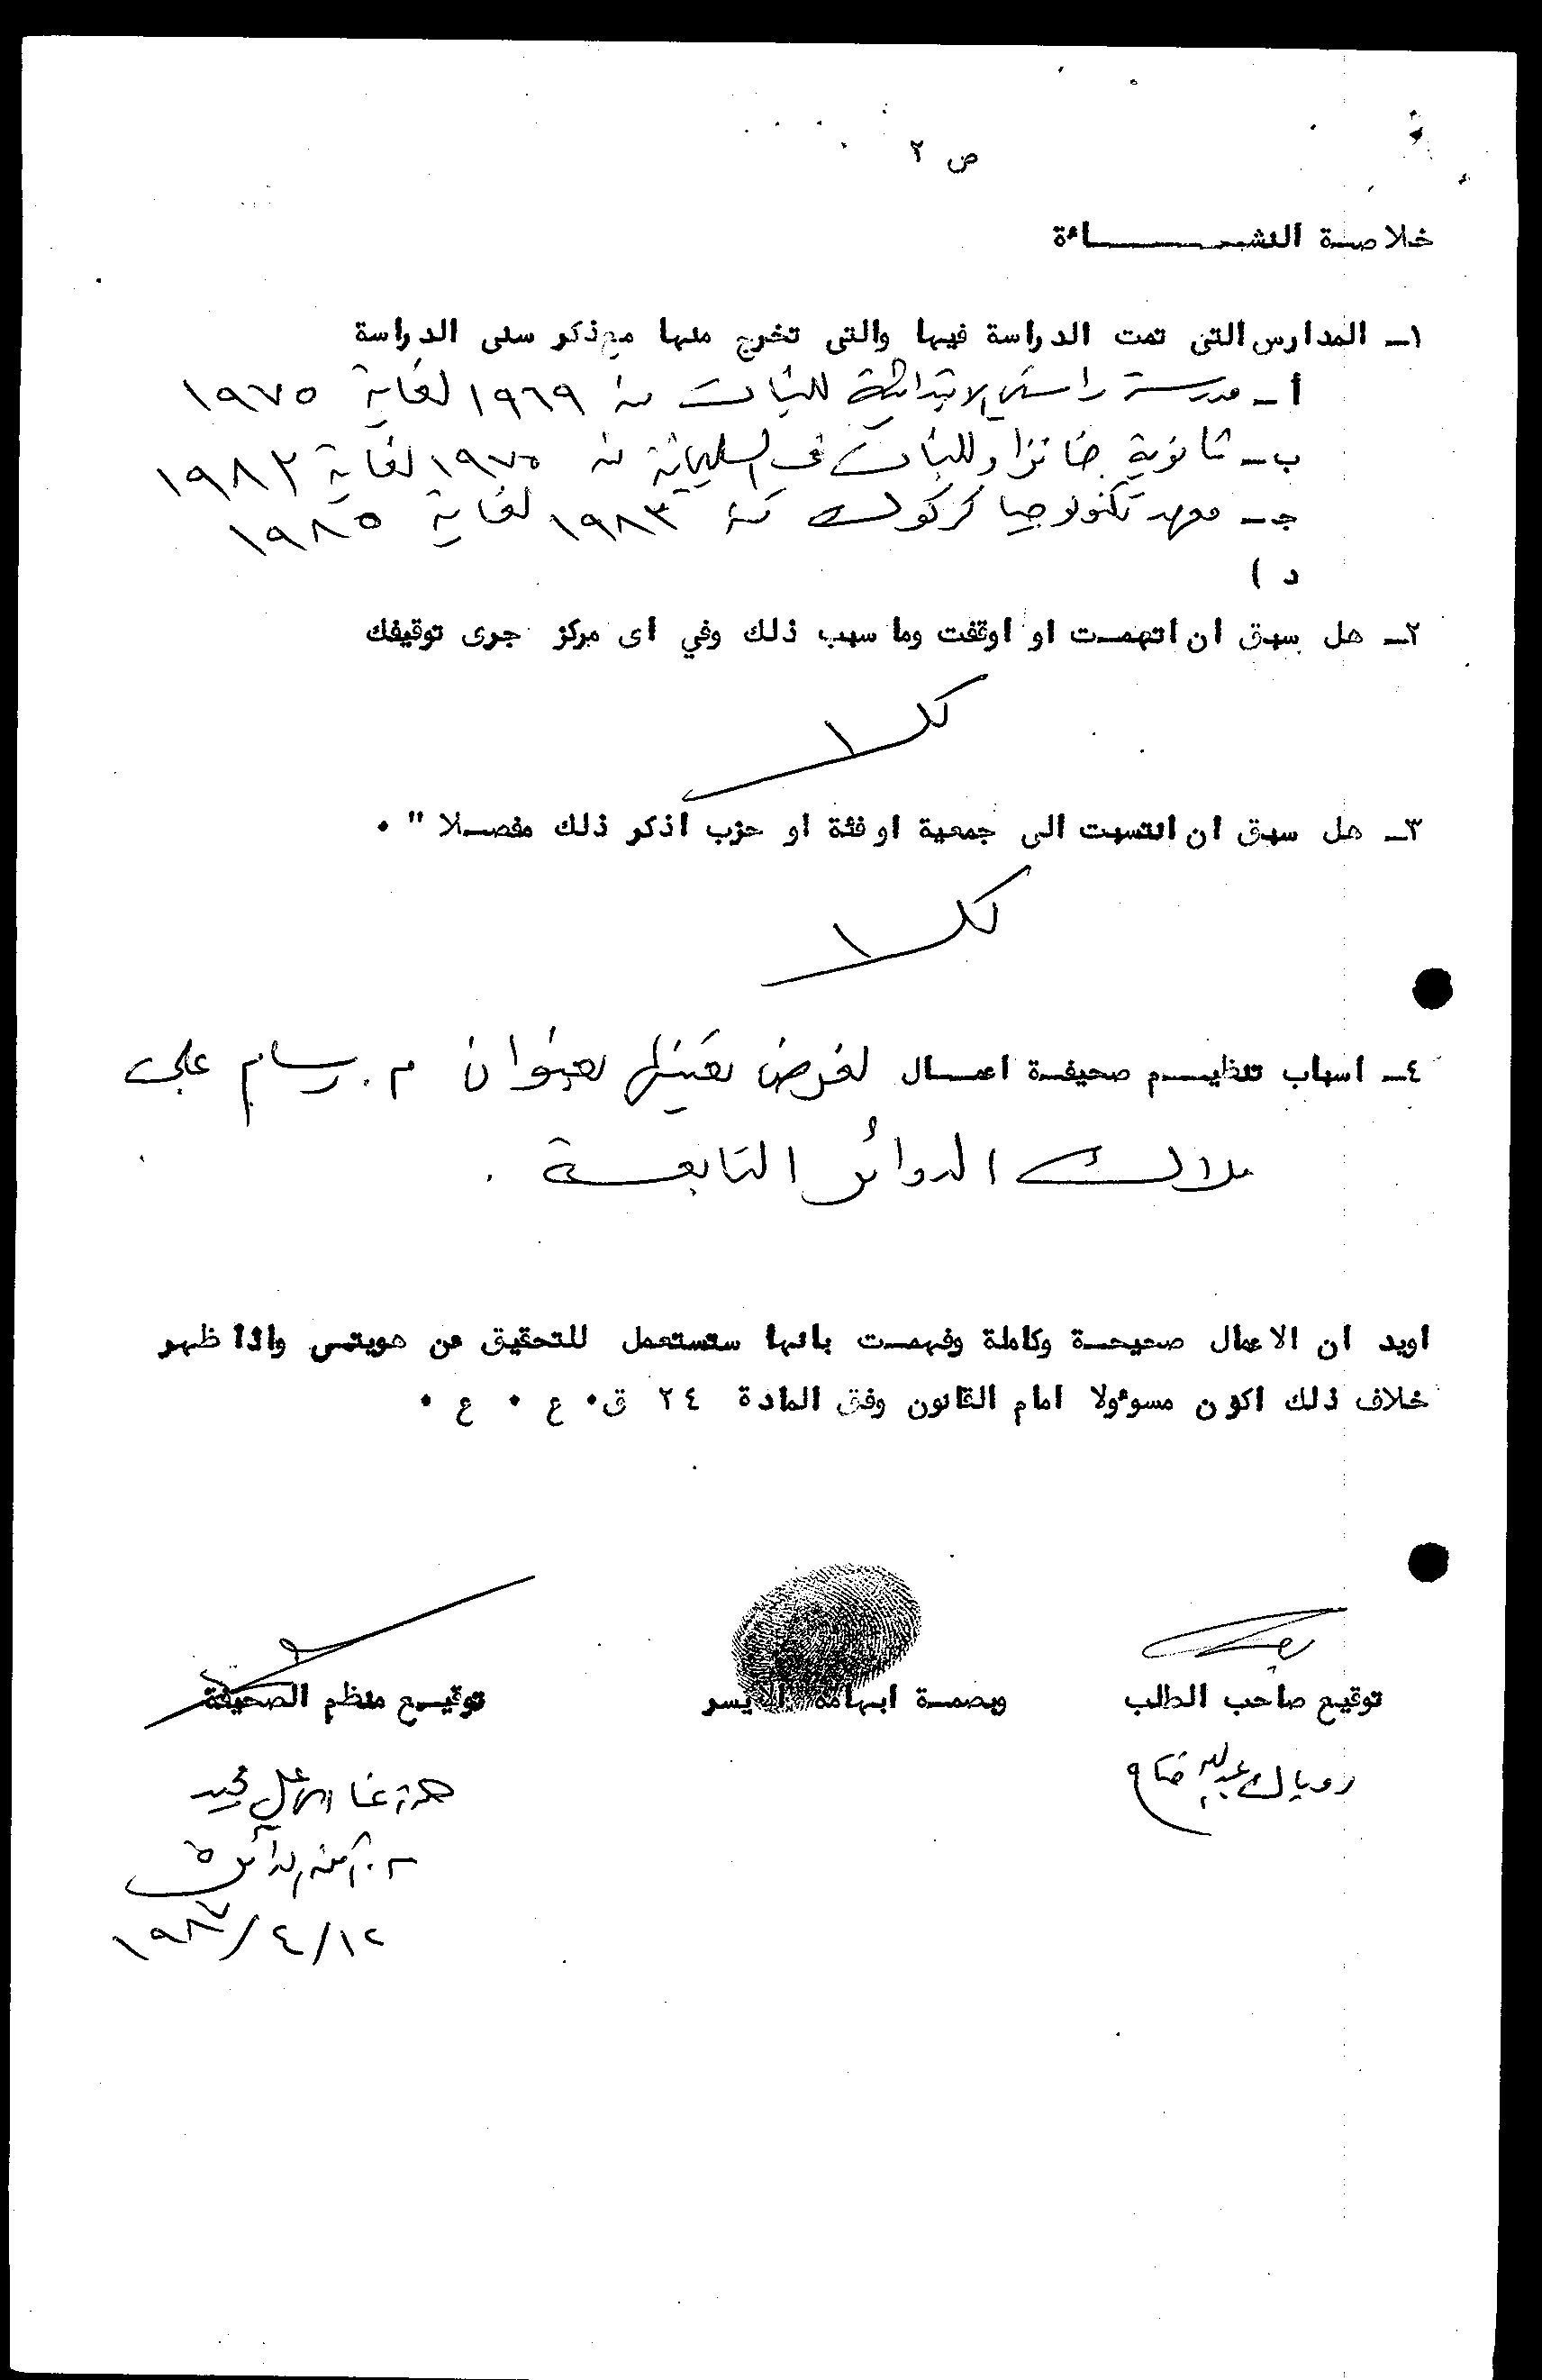 ص ٢
خلاصة النشـــــــاءة
١ـ المدارس التى تمت الدراسة فيها والتى تخرج منها مع ذكر سنى الدراسة
أ ـ مدرسة راستى الابتدائية للبنات من ١٩٦٩ لغاية ١٩٧٥
ب ـ ثانوية خانزاد للبنات في السليمانية من ١٩٧٥ لغاية ١٩٨٢
جـ ـ معهد تكنولوجيا كركوك سنة ١٩٨٣ لغاية ١٩٨٥
د )
٢ـ هل سبق ان اتهمـت او اوقفت وما سبب ذلك وفي اى مركز جرى توقيفك
كلا
٣ـ هل سبق ان انتسبت الى جمعية او فئة او حزب اذكر ذلك مفصـلا " ٠
كلا
٤ـ اسباب تنظيـم صحيفـة اعمـال لغرض تعينها بعنوان م. رسام على
ملاك الدوائر التابعة .
اويد ان الاعمال صحيحـة وكاملة وفهمـت بانها ستستعمل للتحقيق عن هويتـى واذا ظهر
خلاف ذلك اكون مسوءولا امام القانون وفق المادة ٢٤ ق٠ ع ٠ ع ٠
توقيع صاحب الطلب وبصمـة ابهامه الايسر توقيـع منظم الصحيفة
عبدالله
١٢/٤/١٩٨٧